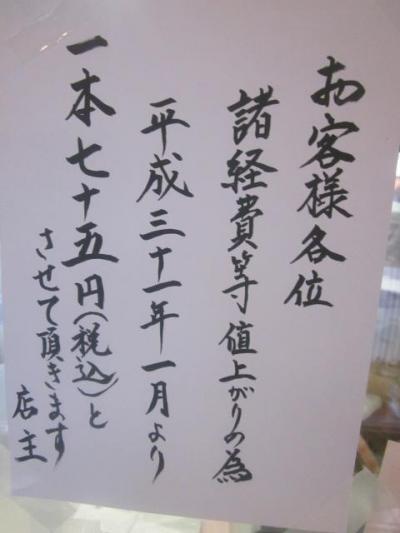 お客様各位
諸経費等値上がりの為
平成三十一年一月より
一本七十五円(税込)と
させて頂きます
店主